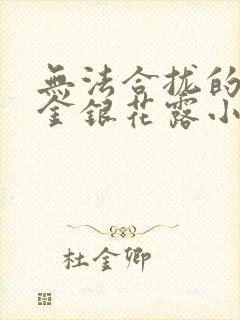 無法合拢的
金銀花露小
杜金卿